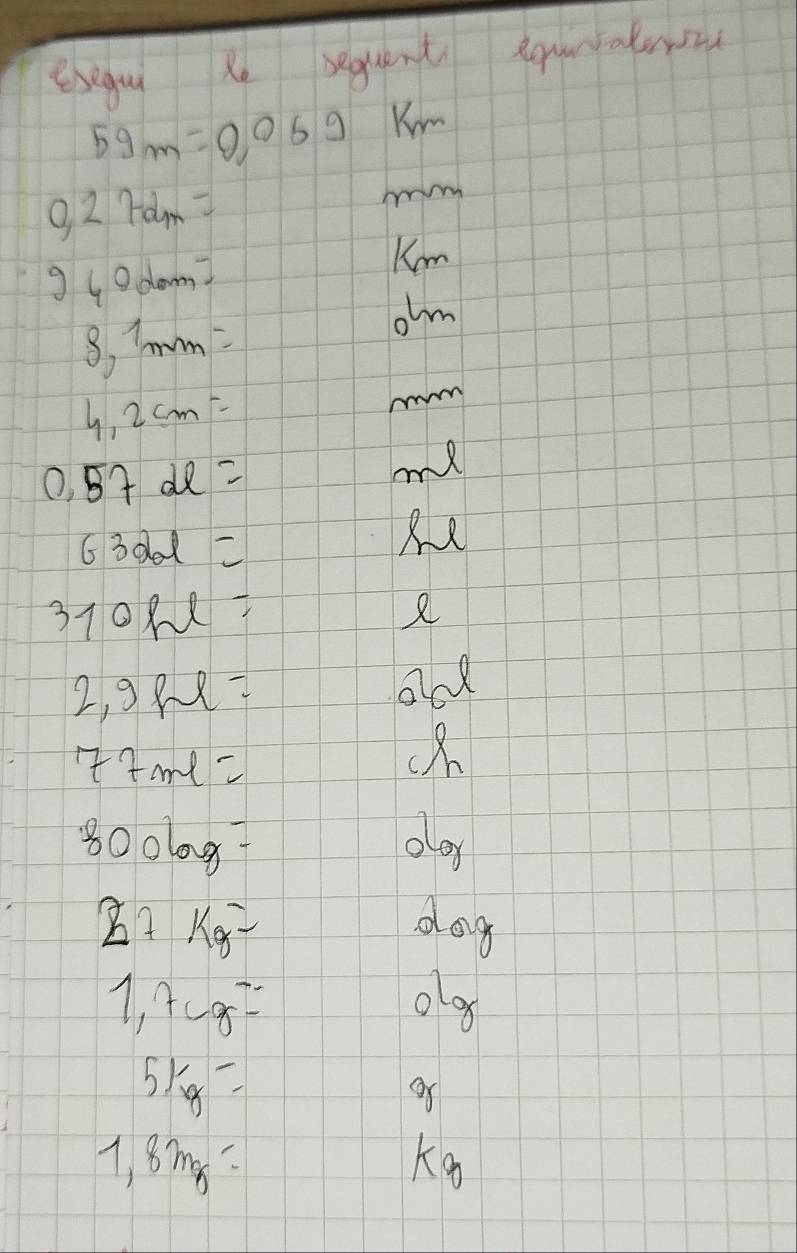 Esegui le seguenti equivalenze
59m = 0,059 Km
0,27dm = mm
940dam = Km
8,1mm = dm
4,2cm = mm
0,57 dl = ml
63dal = hl
310hl = l
2,9hl = dal
77ml =
800dag = dg
27 Kg = dag
1,7cg = dg
5Kg = g
1,8mg = Kg